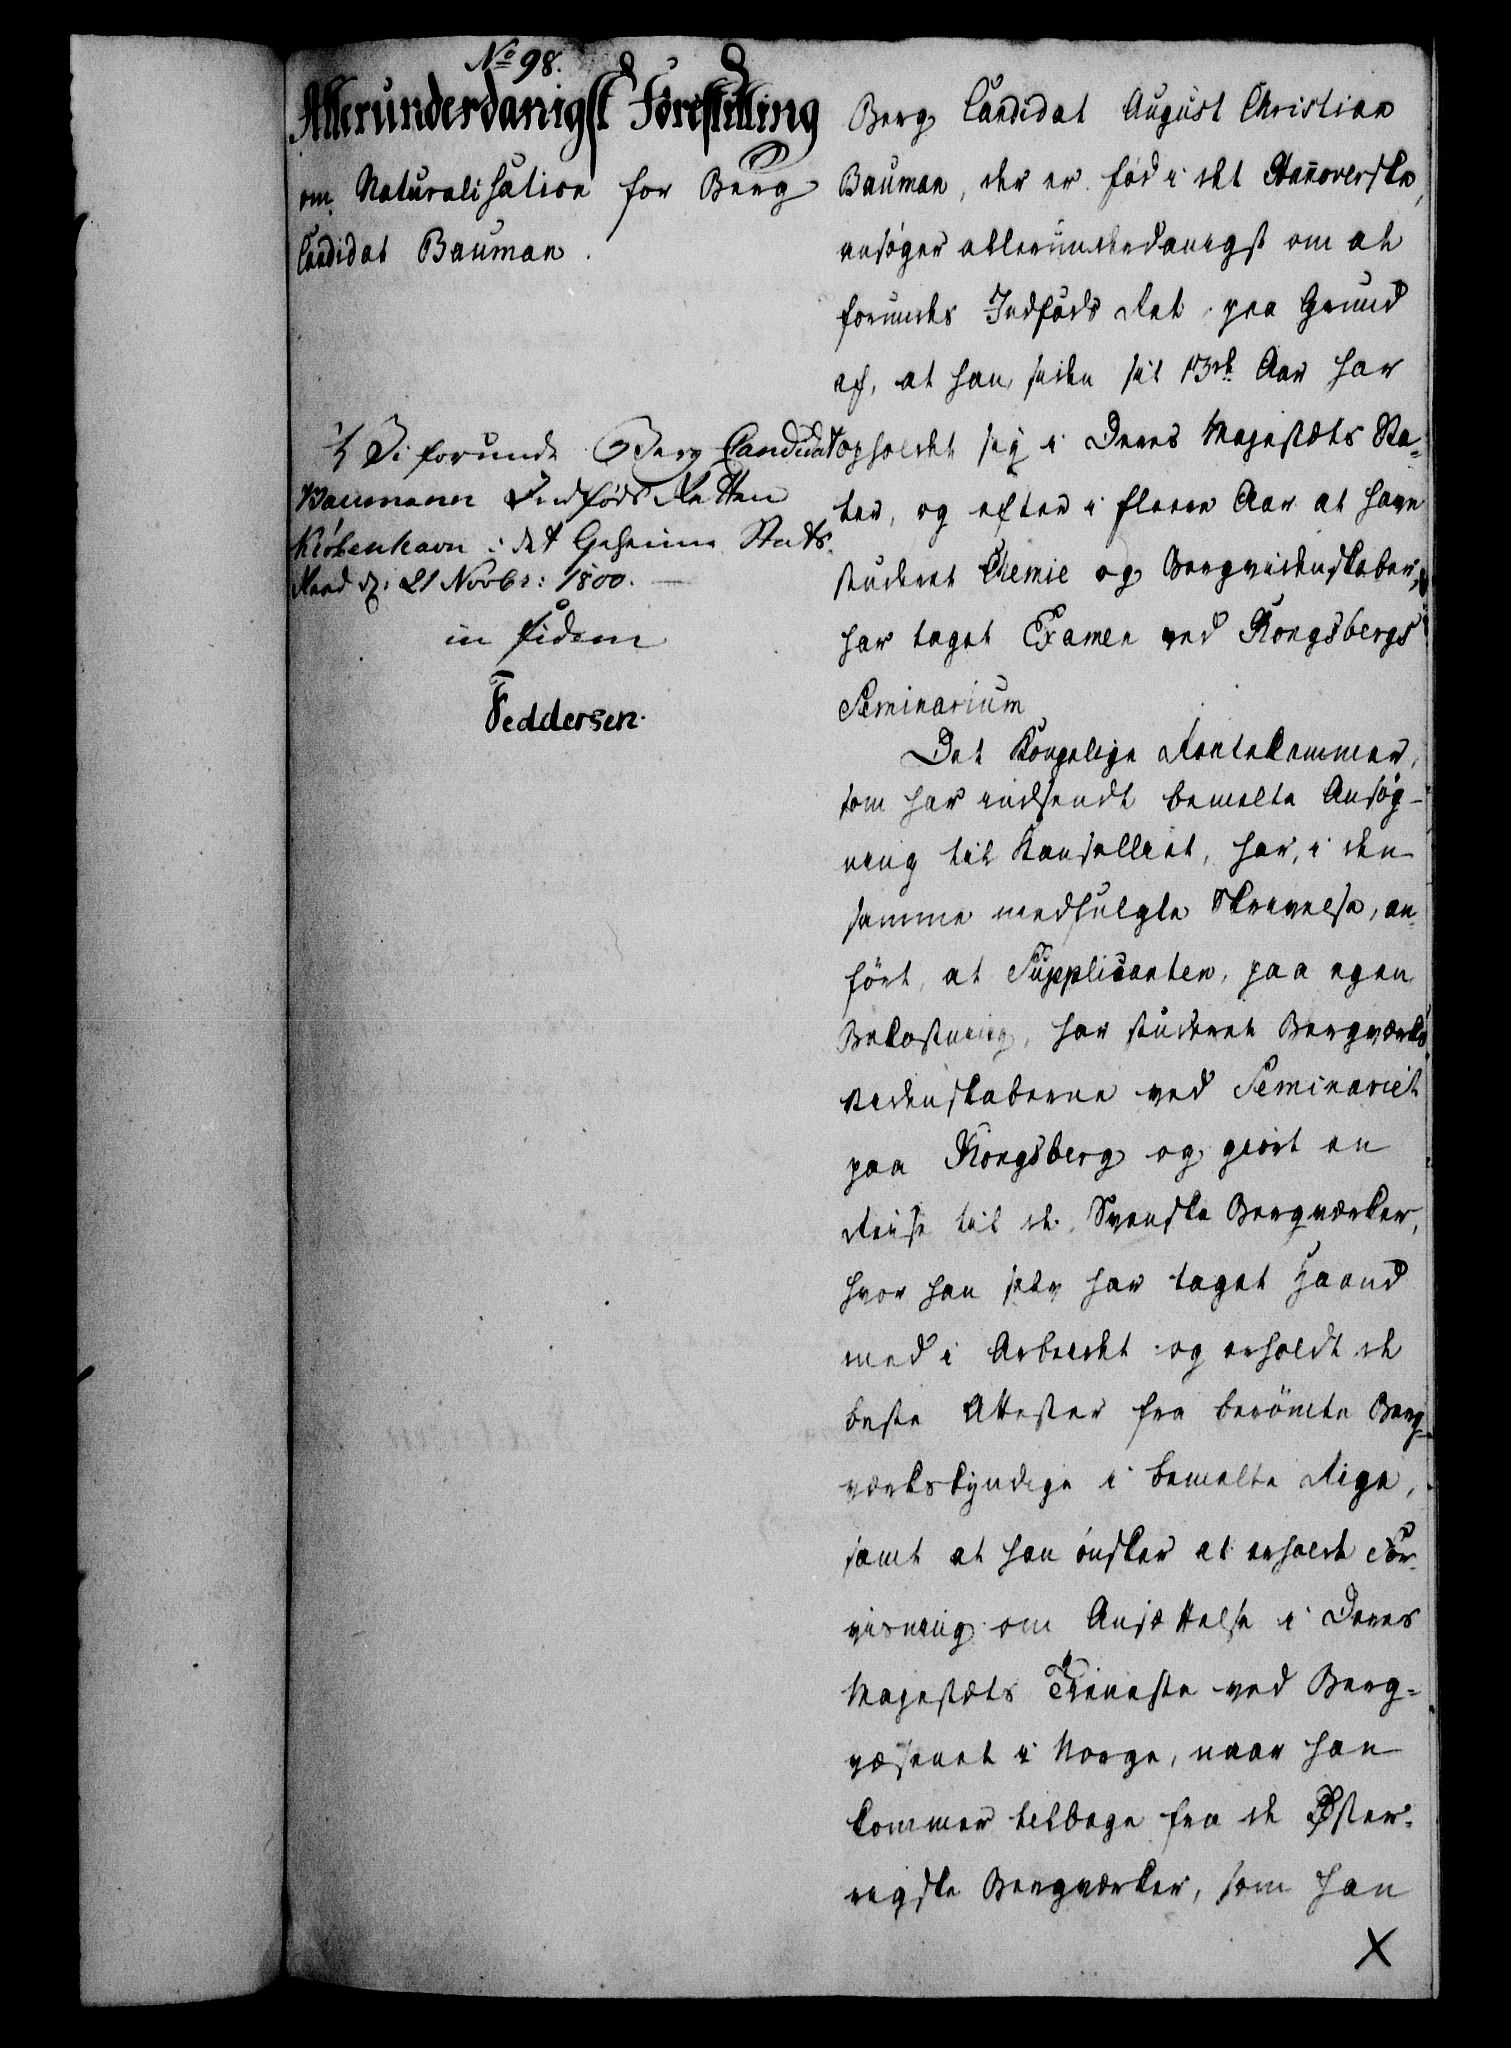 No 98.
Allerunderdanigst Forestilling
om Naturalisation for Berg
Candidat Bauman.
Vi forunde Berg Candidat
Baumann Indføds Retten
Kiøbenhavn i det Geheime Stats
Raad d: 21 Novbr: 1800.
in fidem
Feddersen.
Berg Candidat August Christian
Bauman, der er fød i det Hannoverske,
ansøger allerunderdanigst om at
forundes Indføds Ret, paa Grund
af, at han siden sit 13de Aar har
opholdet sig i Deres Majestæts Sta-
ter, og efter i fleere Aar at have
studeret Chemie og Bergvidenskaber,
har taget Examen ved Kongsbergs
Seminarium
Det Kongelige Rentekammer,
som har indsendt bemelte Ansøg-
ning til Kanselliet, har, i den
samme medfulgte Skrivelse, an-
ført, at Supplicanten, paa egen
Bekostning, har studeret Bergværks
videnskaberne ved Seminariet
paa Kongsberg og giort en
Reise til de Svenske Bergværker,
hvor han selv har taget Haand
med i Arbeidet og erholdt de
beste Attester fra berömte Berg-
værkskyndige i bemelte Rige,
samt at han ønsker at erholde For-
visning om Ansættelse i Deres
Majestæts Tieneste ved Berg-
væsenet i Norge, naar han
kommer tilbage fra de Øster-
rigske Bergværker, som han
X